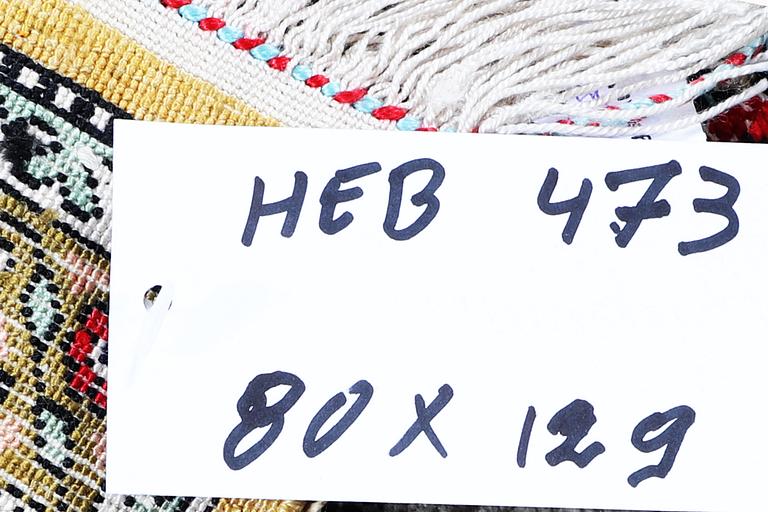 HEB 473
80 X 129